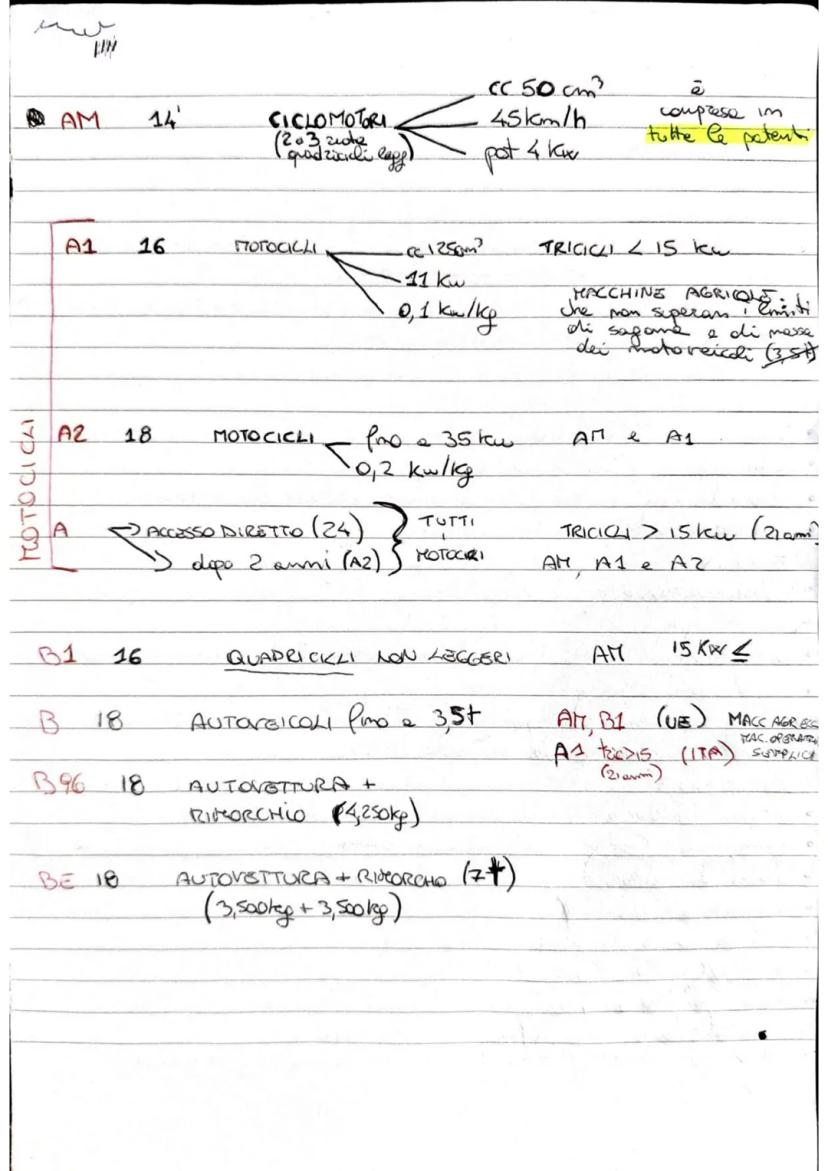 AM 14' CICLOMOTORI cc 50 cm³ è
(2 o 3 ruote 45 km/h compresa in
quadricicli legg) pot 4 Kw tutte le patenti
MOTOCICLI
A1 16 MOTOCICLI cc 125cm³ TRICICLI < 15 kw
11 Kw
0,1 Kw/kg MACCHINE AGRICOLE:
che non superano i limiti
di sagoma e di massa
dei motoveicoli (3,5t)
A2 18 MOTOCICLI fino a 35 kw AM e A1
0,2 Kw/kg
A ACCESSO DIRETTO (24) TUTTI TRICICLI > 15 kw (21 anni)
i
dopo 2 anni (A2) MOTOCICLI AM, A1 e A2
B1 16 QUADRICICLI NON LEGGERI AM 15 KW ≤
B 18 AUTOVEICOLI fino a 3,5t AM, B1 (UE) MACC AGR ECC
MAC. OPERATR
A1 tric>15 (ITA) SEMPLICI
(21 anni)
B96 18 AUTOVETTURA +
RIMORCHIO (4,250kg)
BE 18 AUTOVETTURA + RIMORCHIO (7t)
(3,500kg + 3,500kg)